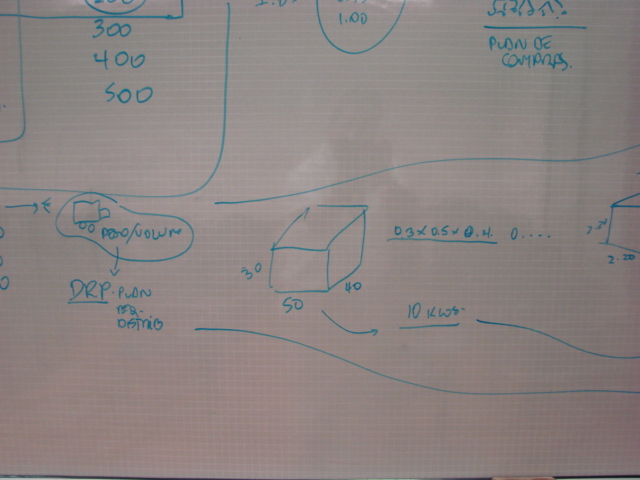 1.00
300
400
500
PLAN DE
COMPRAS.
PESO/VOLUM
DRP. PLAN
30
50
40
0.3 x 0.5 x 0.4. 0....
10 KLOS.
2.20